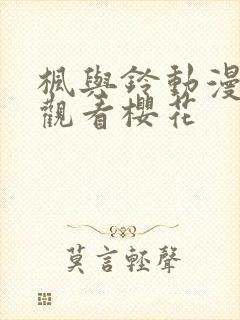 楓與鈴動漫
觀看櫻花
莫言輕聲